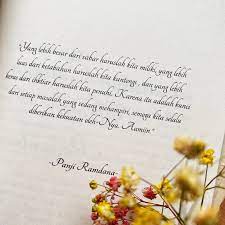 "Yang lebih besar dari sabar haruslah kita miliki, yang lebih
luas dari ketabahan haruslah kita kantongi, dan yang lebih
keras dari ikhtiar haruslah kita penuhi. Karena itu adalah kunci
dari setiap masalah yang sedang menghampiri, semoga kita selalu
diberikan kekuatan oleh-Nya. Aamiin"
-Panji Ramdana-